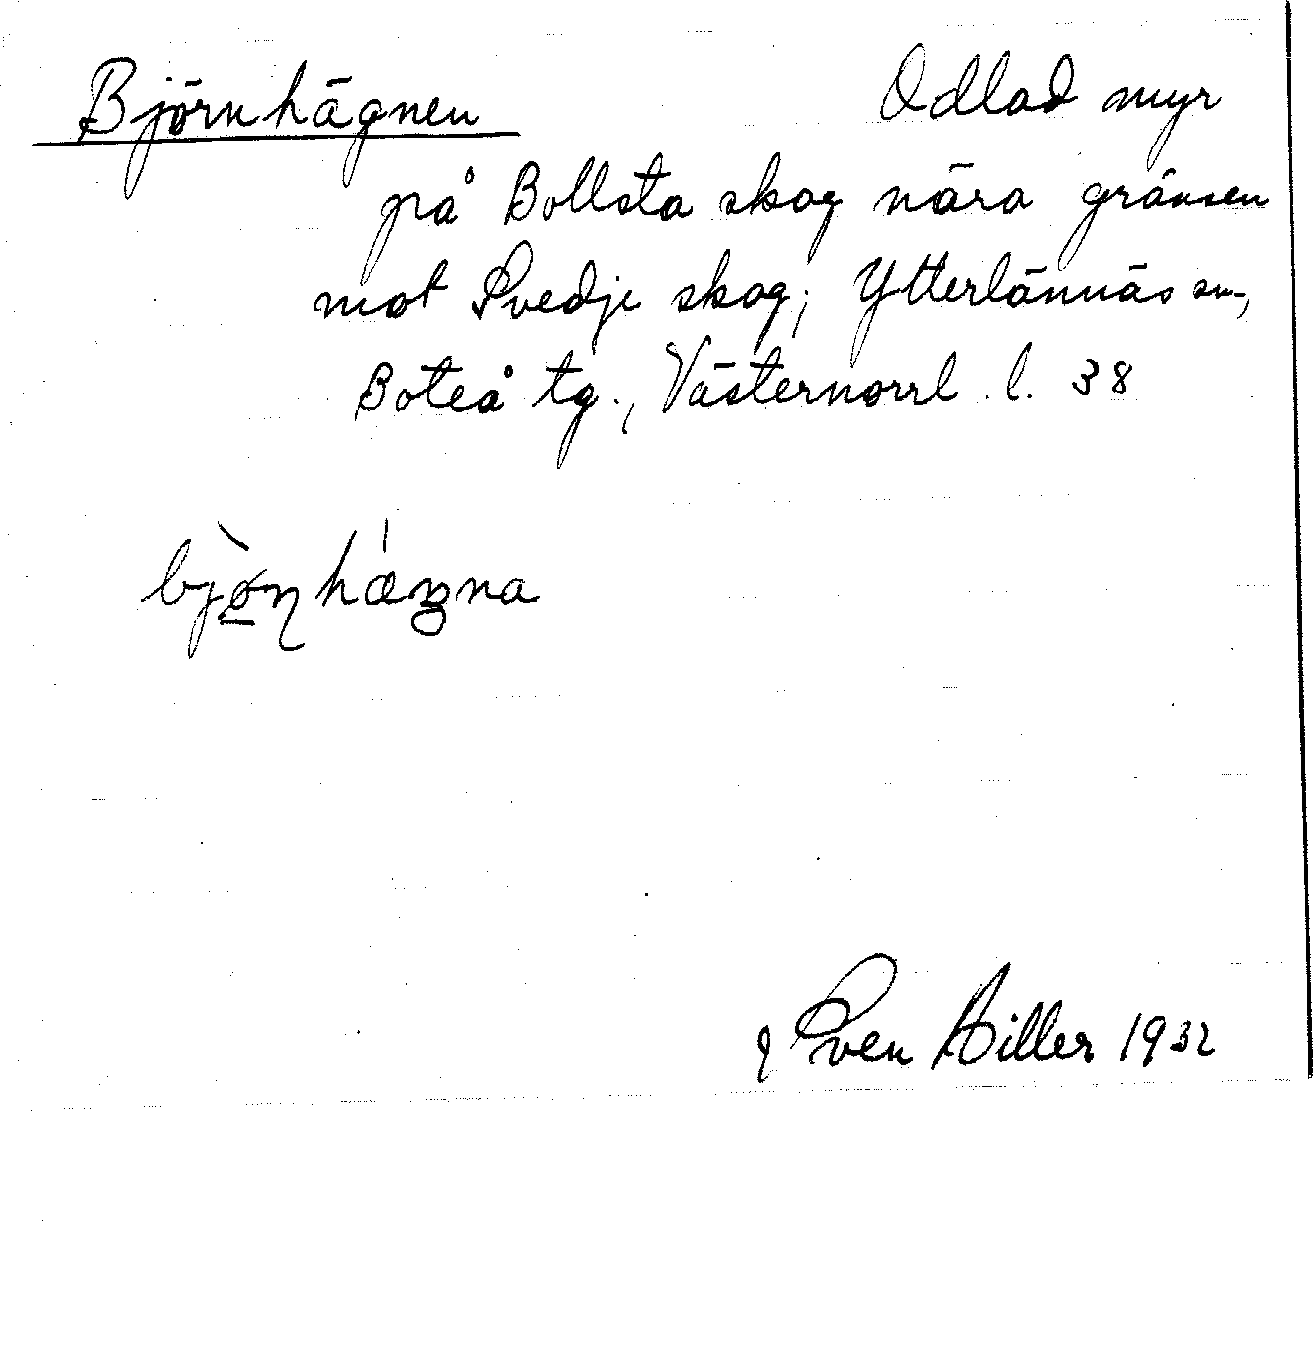 Björnhägnen Odlad myr
på Bollsta skog nära gränsen
mot Svedje skog; Ytterlännäs sn.,
Boteå tg., Västernorrl. l. 38
Sven Hiller 1932